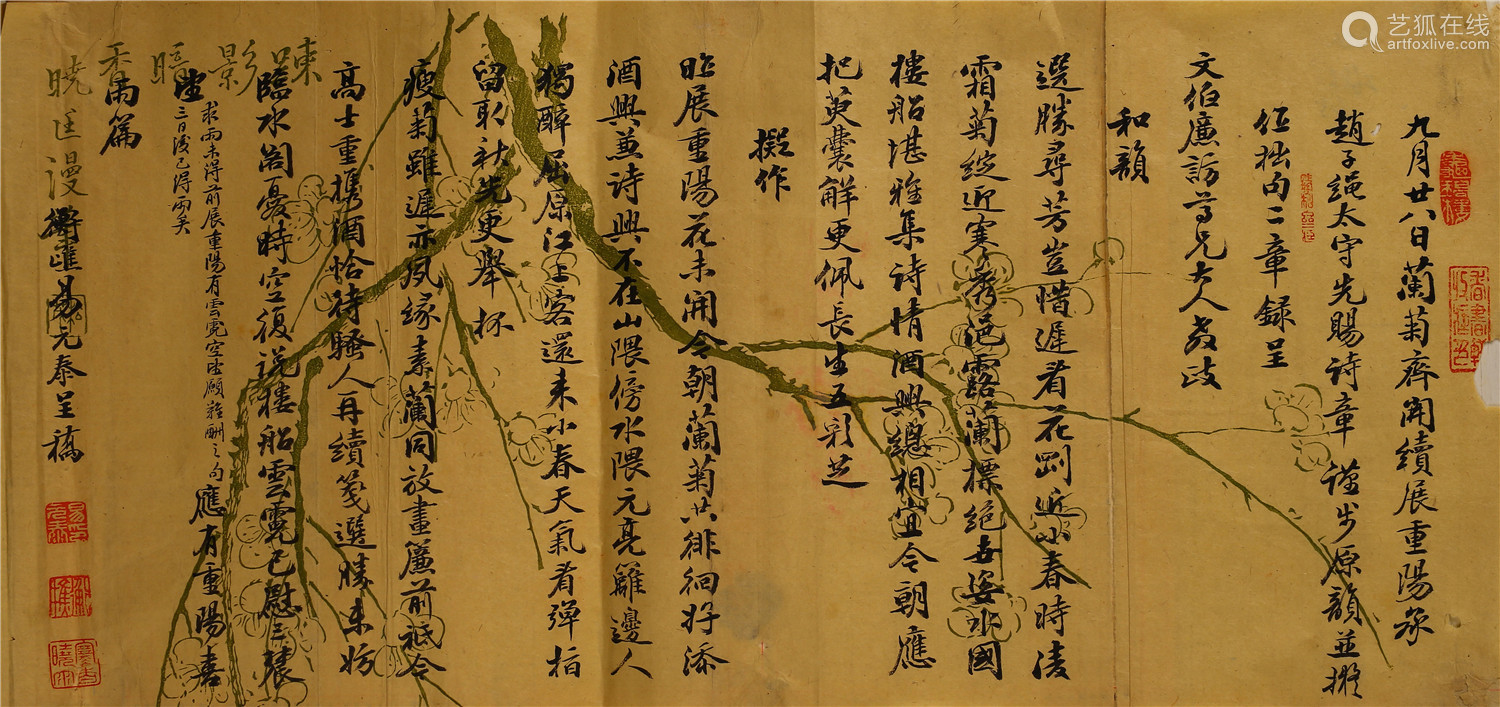 九月廿八日蘭菊齊開續展重陽承
趙子繩太守先賜詩章謹步原韻並擬
征拙句二章錄呈
文伯廉訪尊兄大人教政
和韻
選勝尋芳豈惜遲看花則近小春時凌
霜菊綻近寒秀浥露蘭標絕世姿水國
樓船湛雅集詩情酒興總相宜今朝應
把萸囊解更佩長生五彩芝
擬作
昭展重陽花未開今朝蘭菊共徘徊好添
酒興兼詩興不在山隈傍水隈元亮籬邊人
獨醉屈原江上客還來小春天氣看彈指
留取秋光更舉杯
瘦菊雖遲亦夙緣素蘭同放畫簾前祗今
高士重攜酒恰待騷人再續箋選勝未妨
臨水閣憂時空復說樓船雲霓已慰三農
望
求雨未得前展重陽有雲霓空望願難酬之句
三日後已得雨矣
應有重陽喜
雨篇
易元泰呈稿
疎影
暗香
曉匡漫
艺狐在线
artfoxlive.com